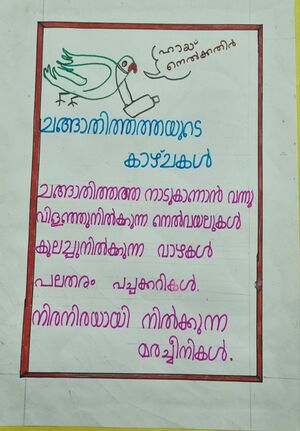 ഹായ്
നെൽക്കതിർ
ചങ്ങാതിത്തത്തയുടെ
കാഴ്ചകൾ
ചങ്ങാതിത്തത്ത നാടുകാന്നാൻ വന്നു
വിളഞ്ഞുനിൽക്കുന്ന നെൽവയലുകൾ
കുലച്ചുനിൽക്കുന്ന വാഴകൾ
പലതരം പച്ചക്കറികൾ.
നിരനിരയായി നിൽക്കുന്ന
മരച്ചീനികൾ.